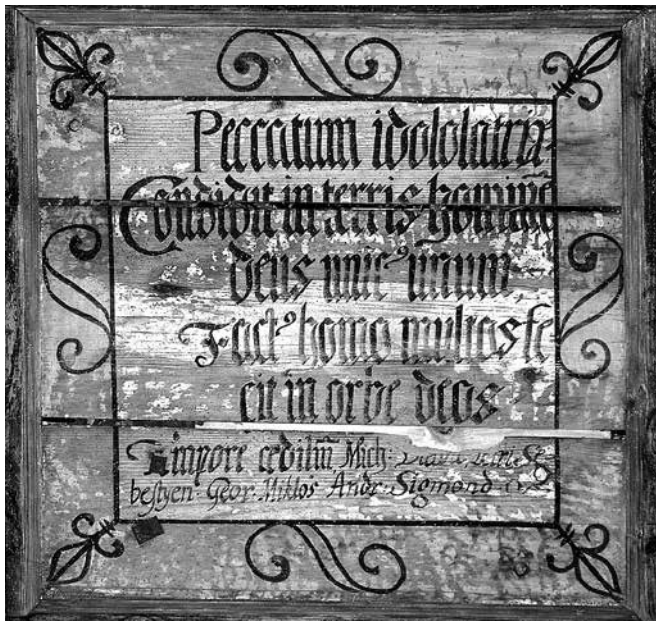 Peccatum idololatriæ
Condidit in terris hominẽ
deus unicꝰ unum.
Factꝰ homo multos fe
cit in orbe deos
Tempore ædilium Mich:
bestyen. Geor. Miklos Andr. Sigmond